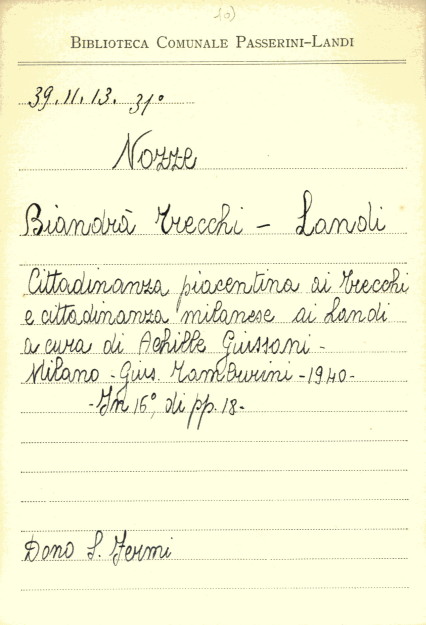 10)
BIBLIOTECA COMUNALE PASSERINI-LANDI
39.11.13. 31°
Nozze
Biandrà Trecchi - Landi
Cittadinanza piacentina ai Trecchi
e cittadinanza milanese ai Landi
a cura di Achille Giussani -
Milano - Gius. Tamburini - 1940 -
- In 16°, di pp. 18 -
Dono S. Fermi